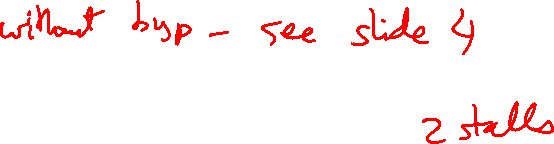 without byp - see slide 4
2 stalls